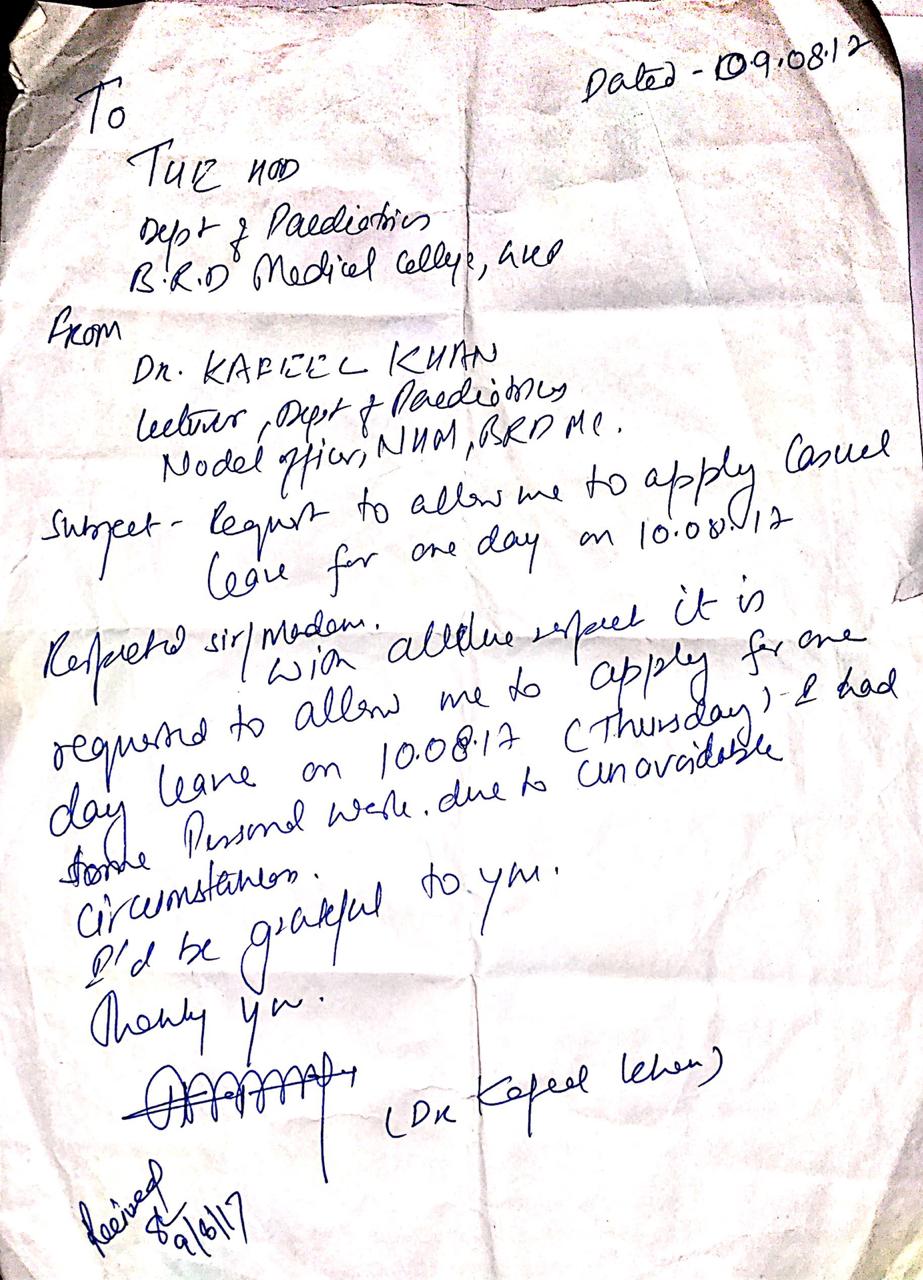 Dated - 09.08.17
To
THE HOD
Dept of Paediatrics
B.R.D Medical College, GKP
From
DR. KAFEEL KHAN
Lecturer, Dept of Paediatrics
Nodal officer, NHM, BRDMC.
Subject - Request to allow me to apply Casual
leave for one day on 10.08.17
Respected sir/Madam.
With all due respect it is
requested to allow me to apply for one
day leave on 10.08.17 (Thursday) I had
some Personal work. due to unavoidable
circumstances.
I'd be grateful to you.
Thank you.
(Dr Kafeel Khan)
Received
9/8/17